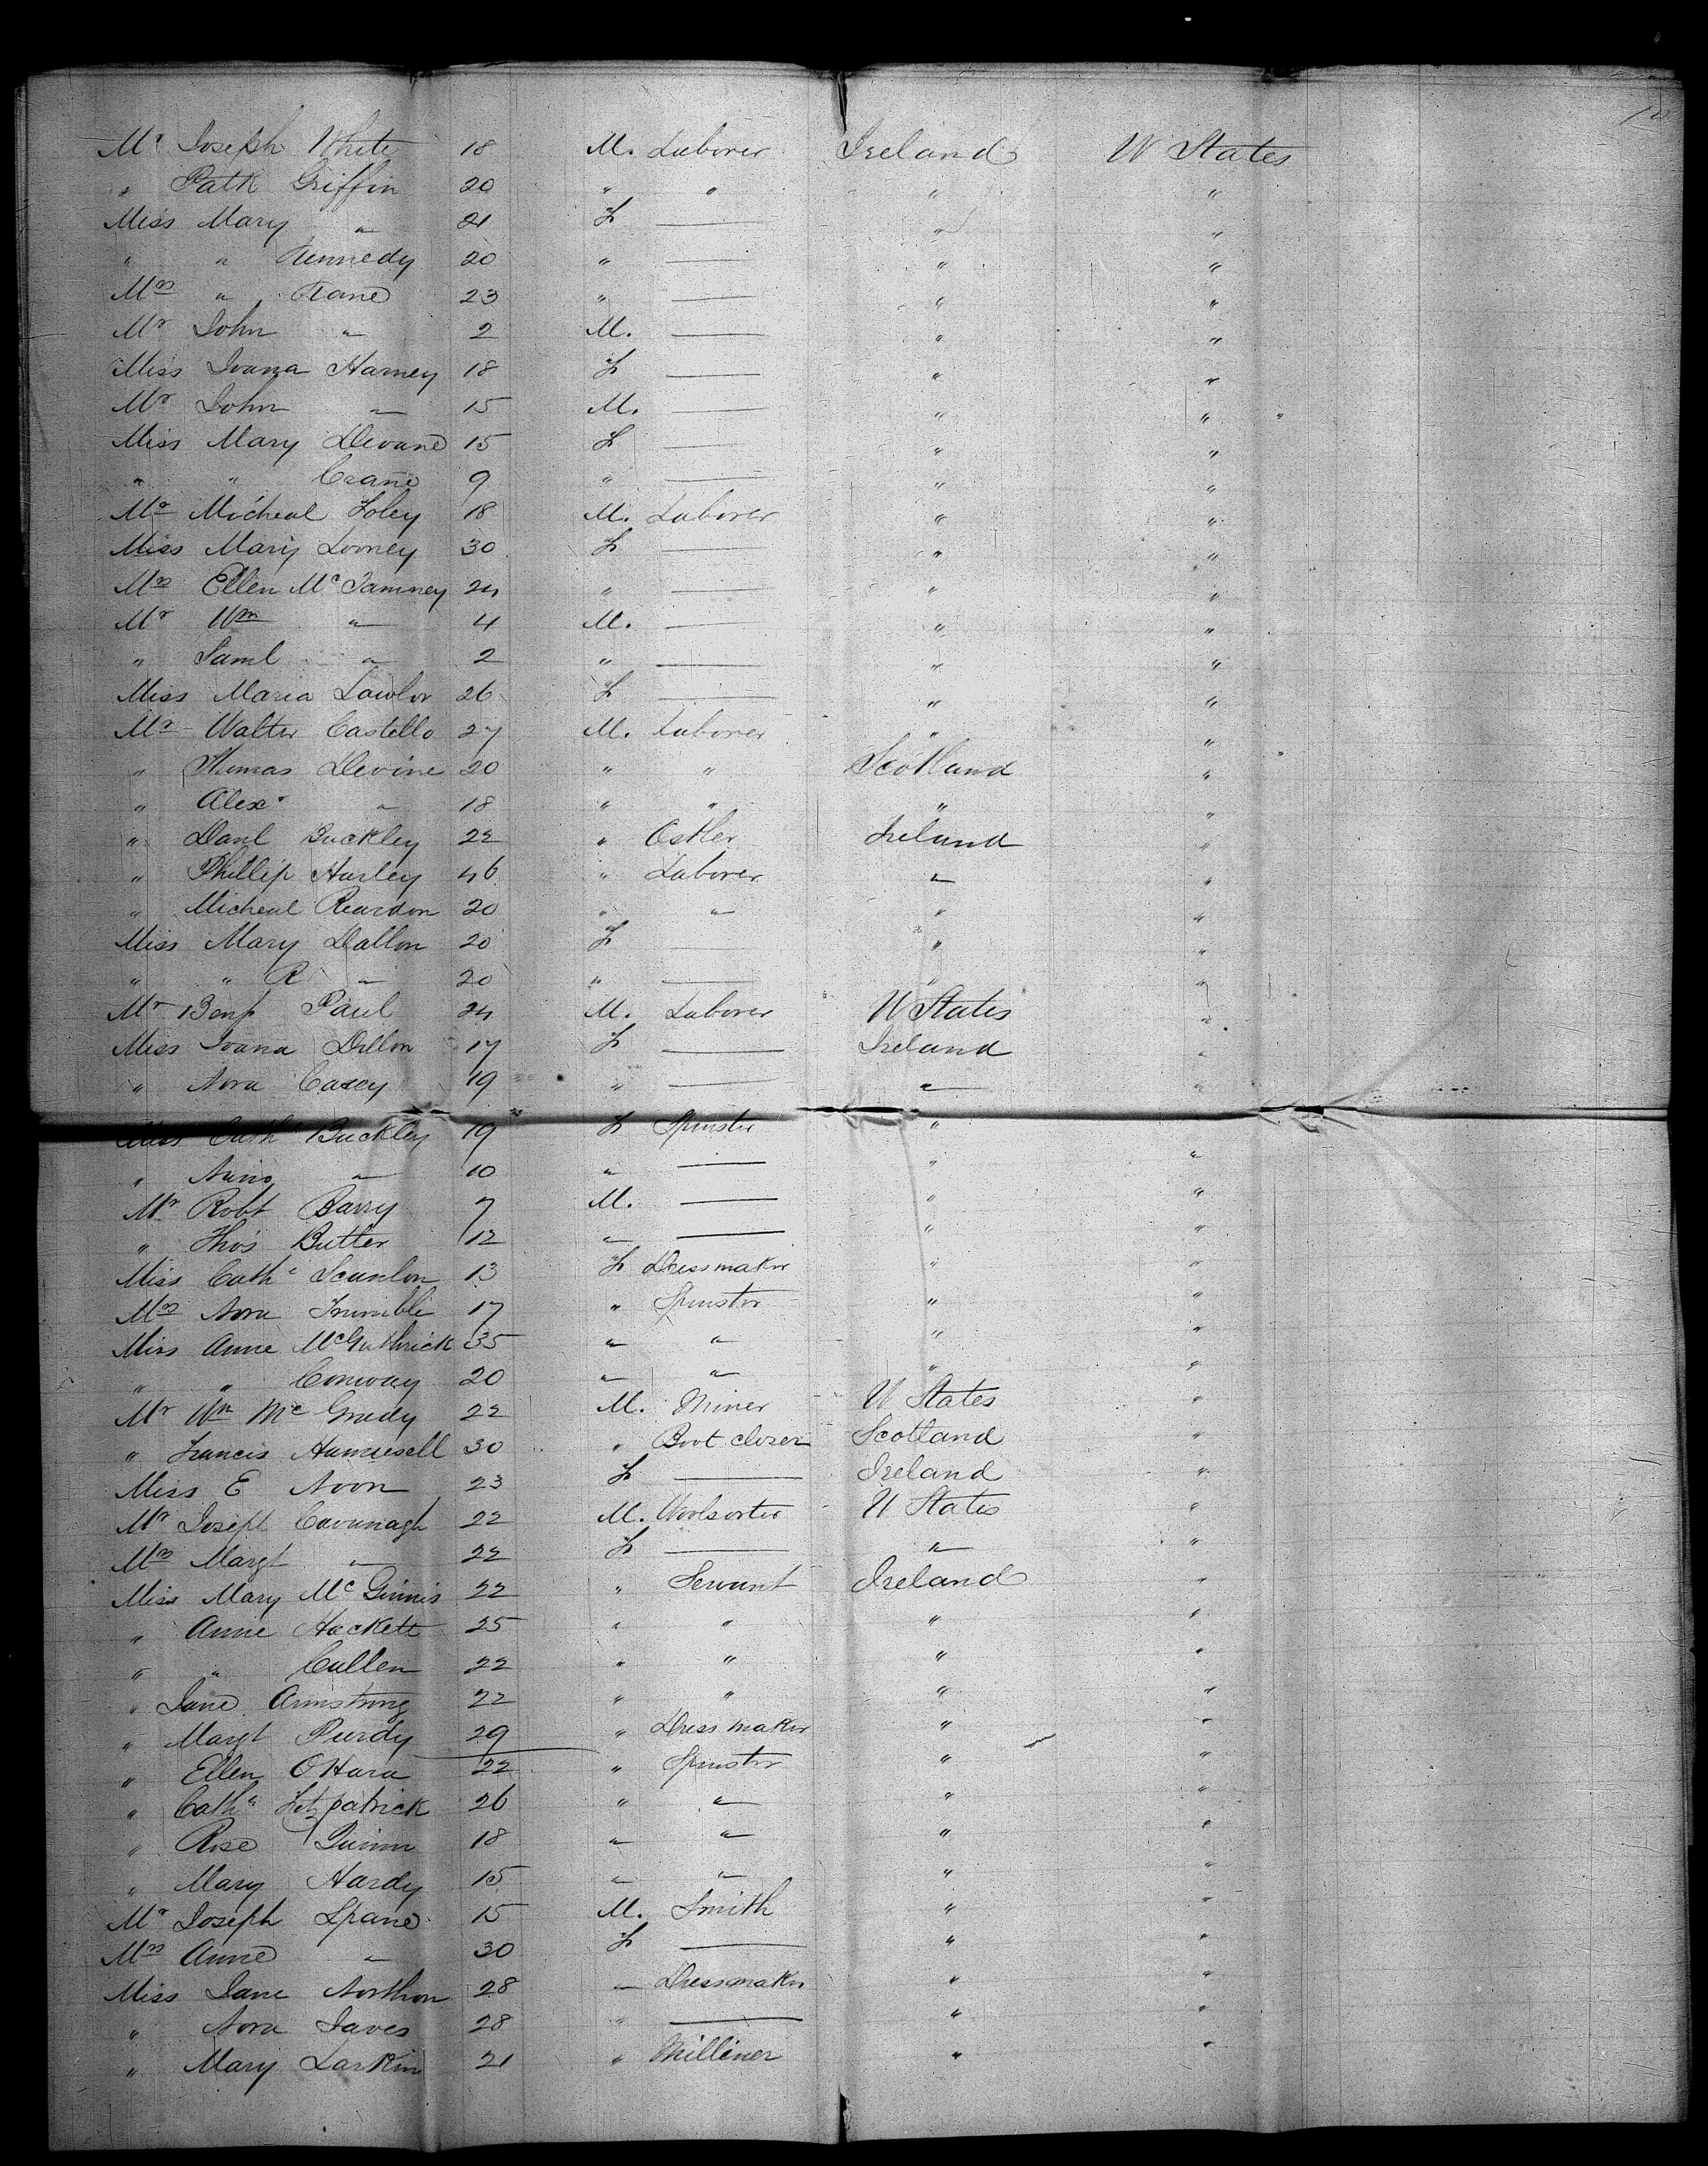 Mr Joseph White 18 M. Laborer Ireland U States
" Patk Griffin 20 " " " "
Miss Mary " 21 F — " "
" " Kennedy 20 " — " "
Mrs " Kane 23 " — " "
Mr John " 2 M. — " "
Miss Joana Harney 18 F — " "
Mr John " 15 M. — " "
Miss Mary Devane 15 F — " "
" " Crane 9 " — " "
Mr Micheal Foley 18 M. Laborer " "
Miss Mary Looney 30 F — " "
Mrs Ellen McTamney 24 " — " "
Mr Wm " 4 M. — " "
" Saml " 2 " — " "
Miss Maria Lawlor 26 F — " "
Mr Walter Castello 27 M. Laborer " "
" Thomas Devine 20 " " Scotland "
" Alexr " 18 " " " "
" Danl Buckley 22 " Ostler Ireland "
" Phillip Hurley 46 " Laborer " "
" Micheal Reardon 20 " " " "
Miss Mary Dallon 20 F — " "
" " R " 20 " — " "
Mr Benj Paul 24 M. Laborer U States "
Miss Joana Dillon 17 F — Ireland "
" Nora Casey 19 " — " "
Miss Cathe Buckley 19 F Spinster "
" " 10 " — " "
Mr Robt Barry 7 M. — " "
" Thos Butler 12 " — " "
Miss Cathe Scanlon 13 F Dressmaker " "
Mrs Nora Trimble 17 " Spinster " "
Miss Anne McGuthrick 35 " " " "
" " Conway 20 " " " "
Mr Wm McGrady 22 M. Miner U States "
" Francis 30 " Boot closer Scotland "
Miss E Noon 23 F — Ireland "
Mr Joseph Cavanagh 22 M. Woolsorter U States "
Mrs Margt " 22 F — " "
Miss Mary McGinnis 22 " Servant Ireland "
" Anne Hackett 25 " " " "
" " Cullen 22 " " " "
" Jane Armstrong 22 " " " "
" Margt Purdy 29 " Dress maker " "
" Ellen OHara 22 " Spinster " "
" Cathe Fitzpatrick 26 " " " "
" Rose Quinn 18 " " " "
" Mary Hardy 15 " " " "
Mr Joseph Spane 15 M. Smith " "
Mrs Anne " 30 F — " "
Miss Jane Northon 28 " Dressmaker " "
" Nora 28 " — " "
" Mary Larkin 21 " Milliner " "